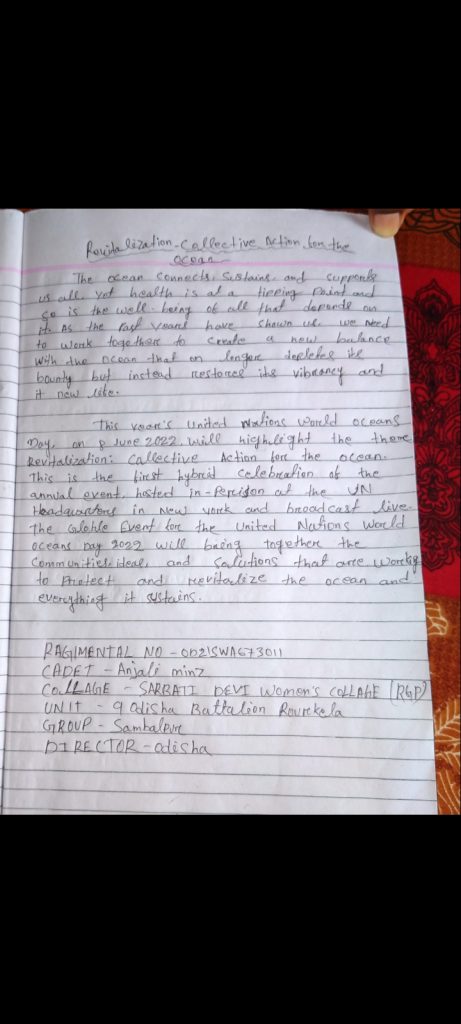 Revitalization - Collective Action for the
ocean
The ocean connects, Sustains, and supports
us all. Yet health is at a tipping Point and
so is the well-being of all that depends on
it. As the Past years have shown us. we need
to work together to create a new balance
With the ocean that on longer depletes its
bounty but instead restores its vibrancy and
it new life.
This year's United Nations World oceans
Day, on 8 June 2022. Will highlight the theme
Revitalization: Collective Action for the ocean.
This is the first hybrid celebration of the
annual event, hosted in-Person at the UN
Headquarters in New york and broadcast live.
The Event for the United Nations World
oceans Day 2022 will being together the
Communities, ideal, and Solutions that are
to Protect and revitalize the ocean and
everything it sustains.
RAGIMENTAL NO - OD21SWA673011
CADET - Anjali minz
COLLAGE - SARBATI DEVI Women's COLLAGE (RGP)
UNIT - 9 odisha Battalion Rourkela
GROUP - Sambalpur
DIRECTOR - odisha